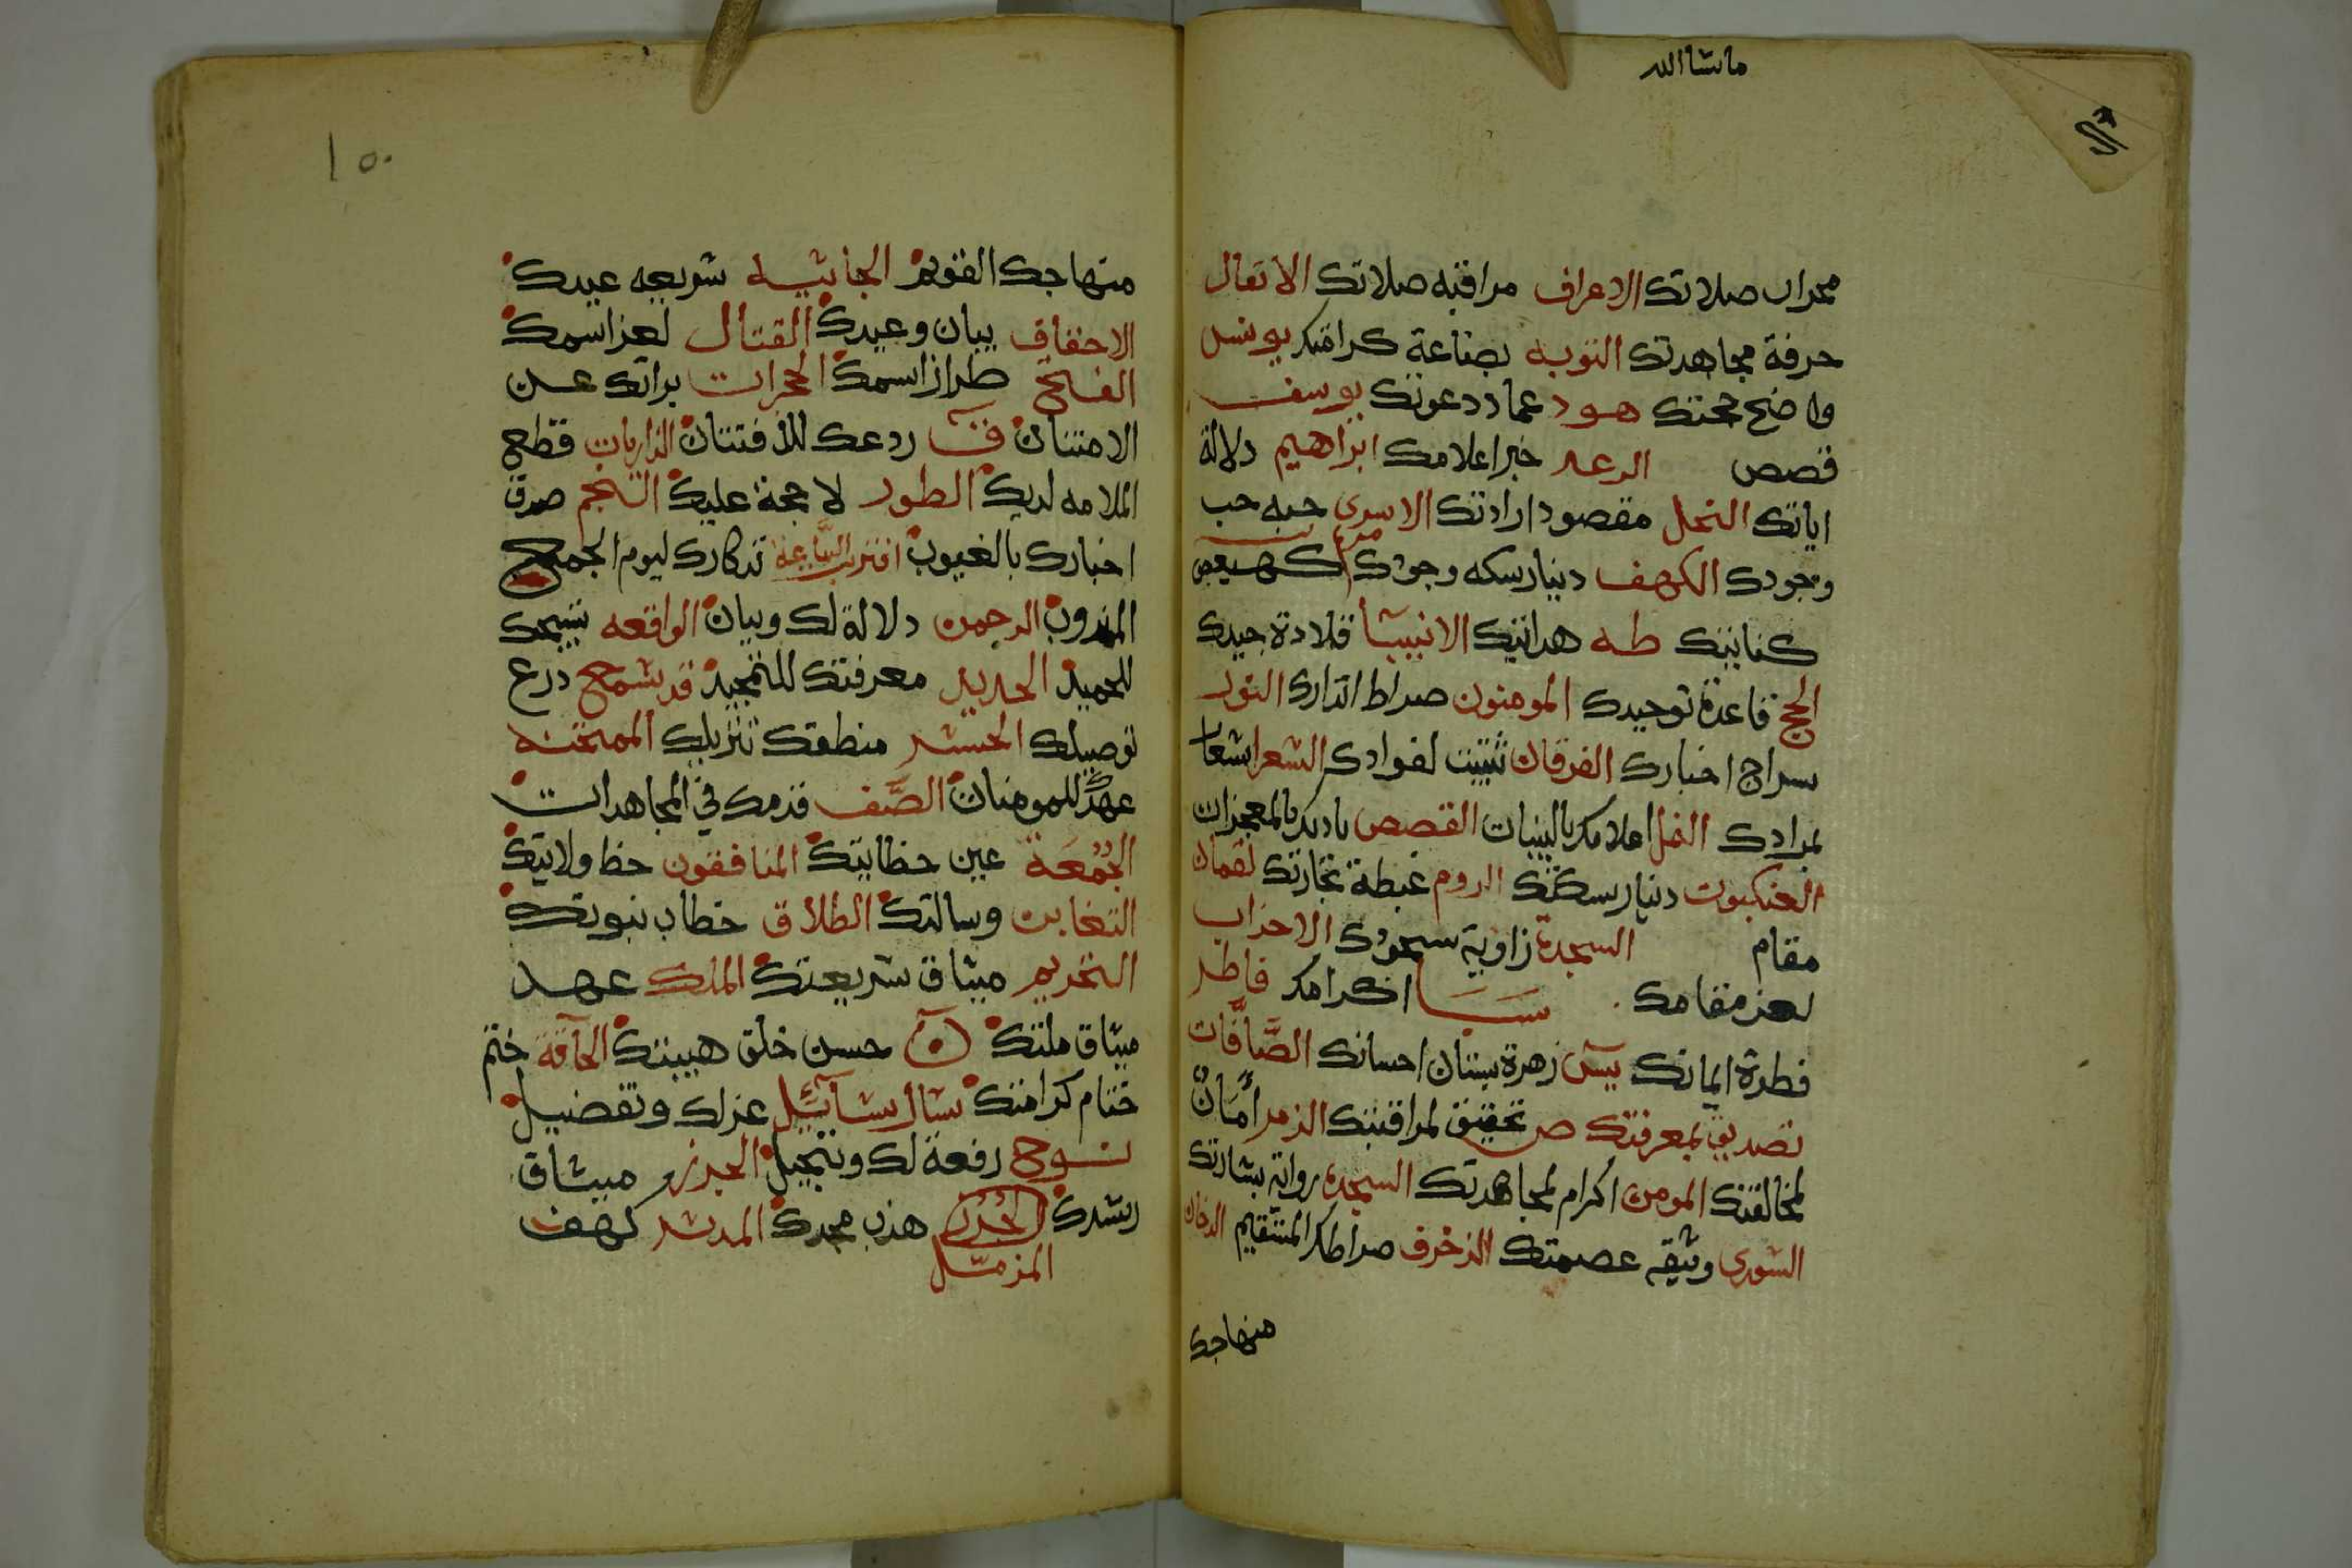 ماشاالله
محراب صلاتك الاعراف مراقبه صلاتك الانفال
حرفة مجاهدتك التوبه بضاعة كرامتك يونس
واضح محجتك هود عماد دعوتك يوسف
قصص الرعد خبر اعلامك ابراهيم دلالة
اياتك النحل مقصود ارادتك الاسرى حبه حب
وجودك الكهف دينار سكه وجودك مريم كهيعص
كنايتك طه هدايتك الانبيا قلادة جيدك
الحج قاعدة توحيدك المومنون صراط انذارك النور
سراج اخبارك الفرقان تثبيت لفوادك الشعرا شعار
لمرادك النمل اعلامك بالبينات القصص ناديك بالمعجزات
العنكبوت دينار سكتك الروم غبطة تجارتك لقمان
مقام السجدة زاوية سجودك الاحزاب
لعز مقامك سبا اكرامك فاطر
فطرة ايمانك يس زهرة بستان احسانك الصَّافَّات
تصديق لمعرفتك ص تحقيق لمراقبتك الزمر أمَانٌ
لمخالفتك المومن اكرام لمجاهدتك السجده رواية بشارتك
الشورى وثيقه عصمتك الزخرف صراطك المستقيم الدخان
منهاجك
١٥٠
منهاجك القويم الجاثيه شريعه عبيدك
الاحقاف بيان وعيدك القتال لعز اسمك
الفتح طراز اسمك الحجرات براتك عن
الامتنان ق ردعك للافتتان الذاريات قطع
الملامه لديك الطور لا حجة عليك النجم صدق
اخبارك بالغيوب اقتربت الساعة تذكارك ليوم الجمع
الرحمن دلالة لك وبيان الواقعه تسبيحك
للحميد الحديد معرفتك للتمجيد قد سمع درع
توصيلك الحشر منطقك تنزيلك الممتحنه
عهدٌ للمومنات الصَّف قدمك في المجاهدات
الجُمُعَة عين خطابتك المنافقون حظ ولايتك
التغابن رسالتك الطلاق خطاب نبوتك
التحريم ميثاق شريعتك الملك عهد
ميثاق ملتك ن حسن خلق هيبتك الحآقة ختم
ختام كرامتك سَال سَآئِل عز لك وتفضيل
نوح رفعة لك وتبجيل الجن ميثاق
رشدك المزمّل هذب مجدك المدثر كهف